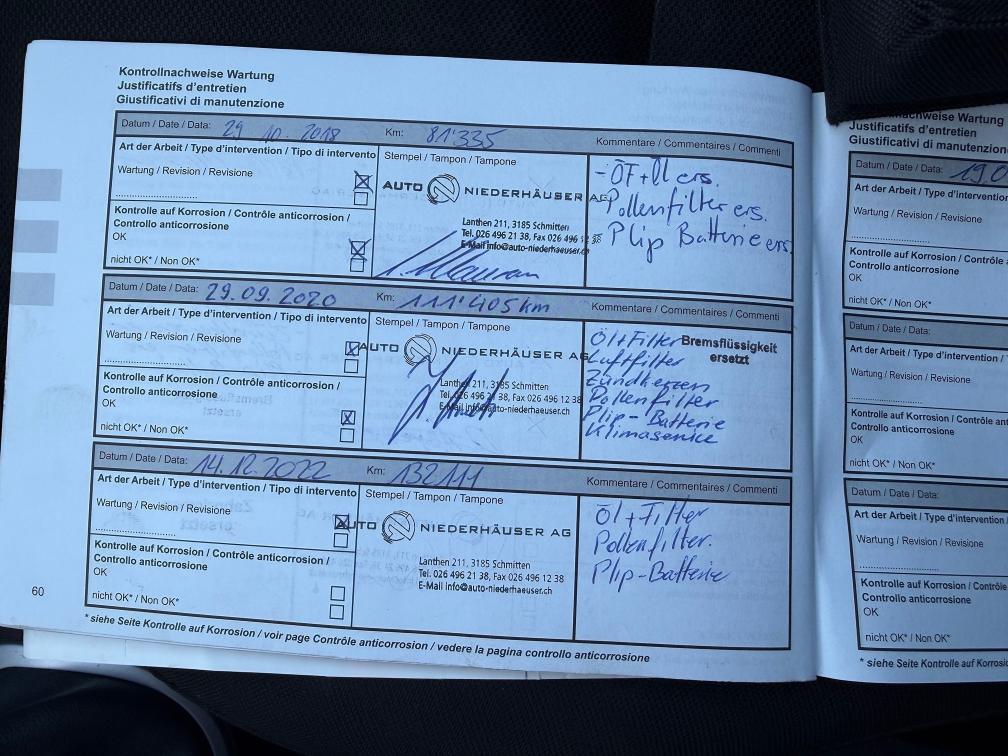 Kontrollnachweise Wartung
Justificatifs d'entretien
Giustificativi di manutenzione
Datum / Date / Data: 29 10. 2018 Km: 81'335 Kommentare / Commentaires / Commenti
Art der Arbeit / Type d'intervention / Tipo di intervento
Wartung / Revision / Revisione
Kontrolle auf Korrosion / Contrôle anticorrosion /
Controllo anticorrosione
OK
nicht OK* / Non OK*
Stempel / Tampon / Tampone
AUTO NIEDERHÄUSER AG
Lanthen 211, 3185 Schmitten
Tel. 026 496 21 38, Fax 026 496 12 38
E-Mail info@auto-niederhaeuser.ch
- ÖF + Öl ers.
Pollenfilter ers.
Plip Batterie ers.
Datum / Date / Data: 29.09.2020 Km: 111'405 km Kommentare / Commentaires / Commenti
Art der Arbeit / Type d'intervention / Tipo di intervento
Wartung / Revision / Revisione
Kontrolle auf Korrosion / Contrôle anticorrosion /
Controllo anticorrosione
OK
nicht OK* / Non OK*
Stempel / Tampon / Tampone
AUTO NIEDERHÄUSER AG
Lanthen 211, 3185 Schmitten
Tel. 026 496 21 38, Fax 026 496 12 38
E-Mail info@auto-niederhaeuser.ch
Öl + Filter
Bremsflüssigkeit
ersetzt
Luftfilter
Zündkerzen
Pollenfilter
Plip-Batterie
Klimaservice
Datum / Date / Data: 14.12.2022 Km: 132111 Kommentare / Commentaires / Commenti
Art der Arbeit / Type d'intervention / Tipo di intervento
Wartung / Revision / Revisione
Kontrolle auf Korrosion / Contrôle anticorrosion /
Controllo anticorrosione
OK
nicht OK* / Non OK*
Stempel / Tampon / Tampone
AUTO NIEDERHÄUSER AG
Lanthen 211, 3185 Schmitten
Tel. 026 496 21 38, Fax 026 496 12 38
E-Mail info@auto-niederhaeuser.ch
Öl + Filter
Pollenfilter.
Plip-Batterie
60
* siehe Seite Kontrolle auf Korrosion / voir page Contrôle anticorrosion / vedere la pagina controllo anticorrosione
Wartung
Justificatifs d'entretien
Giustificativi di manutenzione
Datum / Date / Data: 19.0
Art der Arbeit / Type d'intervention
Wartung / Revision / Revisione
Kontrolle auf Korrosion /
Controllo anticorrosione
OK
nicht OK* / Non OK*
Datum / Date / Data:
Art der Arbeit / Type d'intervention /
Wartung / Revision / Revisione
Kontrolle auf Korrosion / Contrôle
Controllo anticorrosione
OK
nicht OK* / Non OK*
Datum / Date / Data:
Art der Arbeit / Type d'intervention
Wartung / Revision / Revisione
Kontrolle auf Korrosion /
Controllo anticorrosione
OK
nicht OK* / Non OK*
* siehe Seite Kontrolle auf